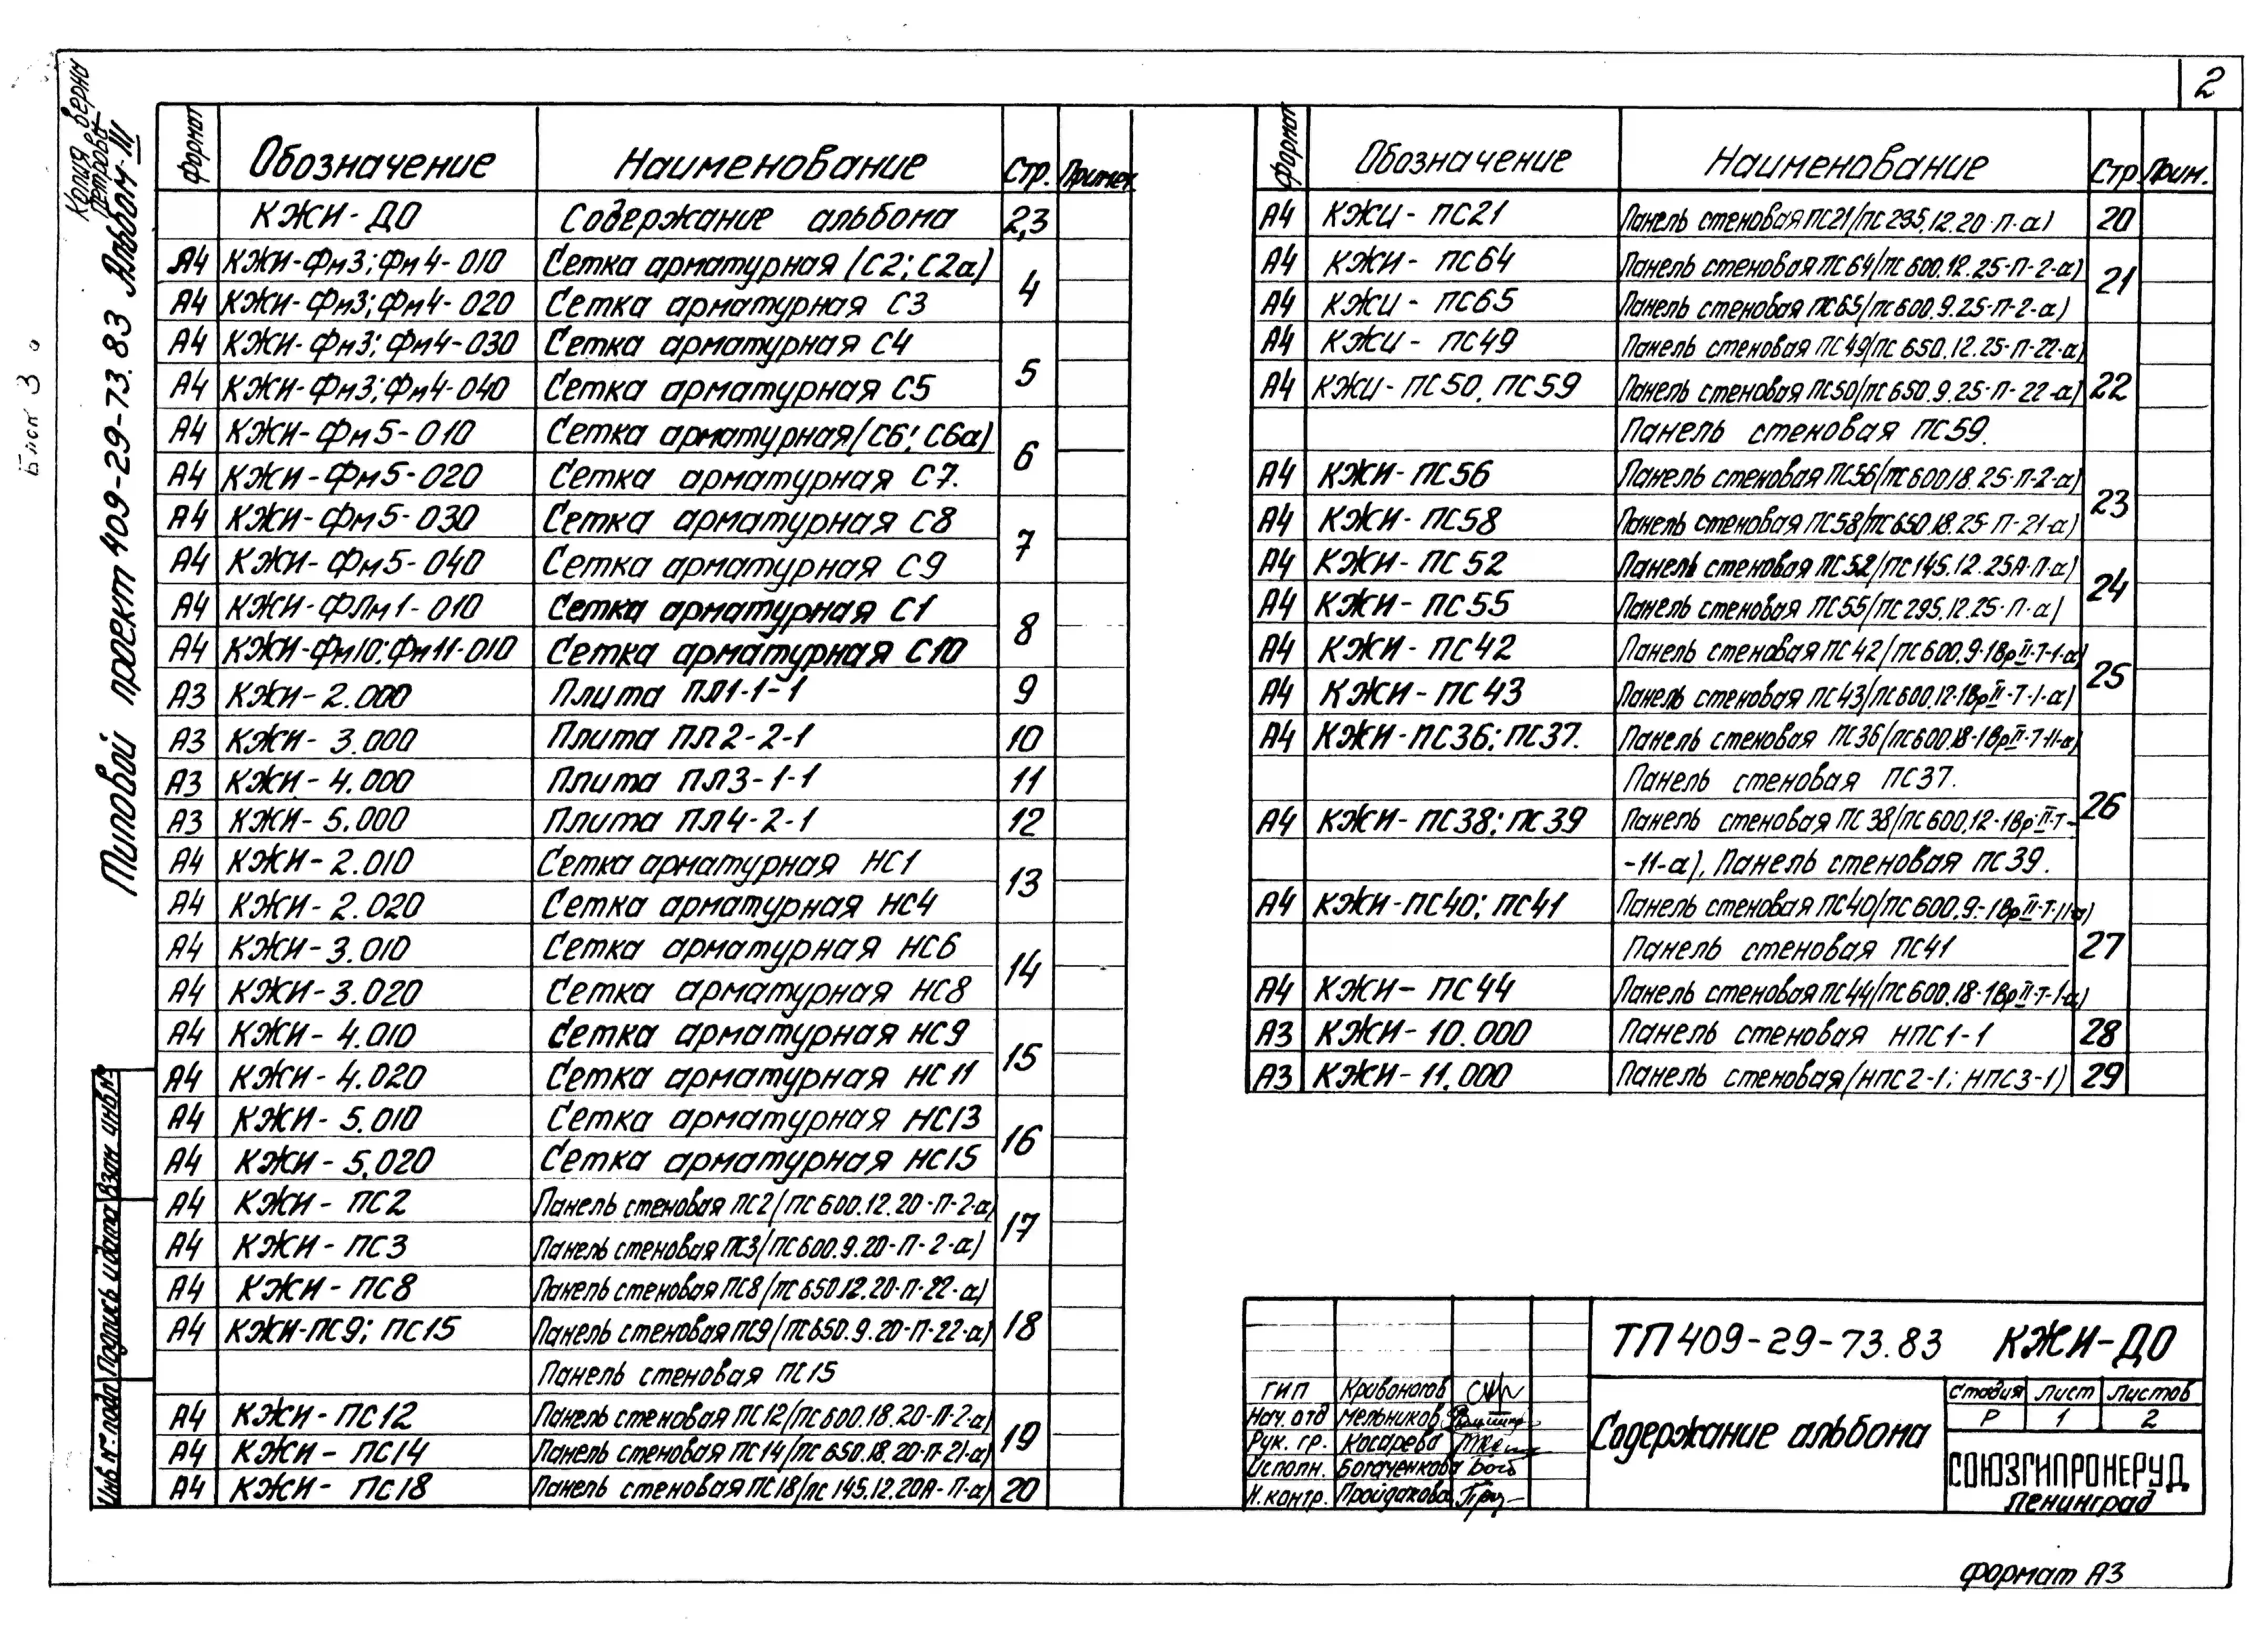 2
Копия верна
Петрова
Типовой проект 409-29-73.83 Альбом-III
Формат Обозначение Наименование Стр. Примеч.
КЖИ-ДО Содержание альбома 2,3
А4 КЖИ-Фм3; Фм4-010 Сетка арматурная (С2; С2а) 4
А4 КЖИ-Фм3; Фм4-020 Сетка арматурная С3
А4 КЖИ-Фм3; Фм4-030 Сетка арматурная С4 5
А4 КЖИ-Фм3; Фм4-040 Сетка арматурная С5
А4 КЖИ-Фм5-010 Сетка арматурная (С6; С6а) 6
А4 КЖИ-Фм5-020 Сетка арматурная С7.
А4 КЖИ-Фм5-030 Сетка арматурная С8 7
А4 КЖИ-Фм5-040 Сетка арматурная С9
А4 КЖИ-ФЛм1-010 Сетка арматурная С1 8
А4 КЖИ-Фм10; Фм11-010 Сетка арматурная С10
А3 КЖИ-2.000 Плита ПЛ1-1-1 9
А3 КЖИ-3.000 Плита ПЛ2-2-1 10
А3 КЖИ-4.000 Плита ПЛ3-1-1 11
А3 КЖИ-5.000 Плита ПЛ4-2-1 12
А4 КЖИ-2.010 Сетка арматурная НС1 13
А4 КЖИ-2.020 Сетка арматурная НС4
А4 КЖИ-3.010 Сетка арматурная НС6 14
А4 КЖИ-3.020 Сетка арматурная НС8
А4 КЖИ-4.010 Сетка арматурная НС9 15
А4 КЖИ-4.020 Сетка арматурная НС11
А4 КЖИ-5.010 Сетка арматурная НС13 16
А4 КЖИ-5.020 Сетка арматурная НС15
А4 КЖИ-ПС2 Панель стеновая ПС2/ПС600.12.20-П-2-а) 17
А4 КЖИ-ПС3 Панель стеновая ПС3/ПС600.9.20-П-2-а)
А4 КЖИ-ПС8 Панель стеновая ПС8/ПС650.12.20-П-22-а) 18
А4 КЖИ-ПС9; ПС15 Панель стеновая ПС9/ПС650.9.20-П-22-а)
Панель стеновая ПС15
А4 КЖИ-ПС12 Панель стеновая ПС12/ПС600.18.20-П-2-а) 19
А4 КЖИ-ПС14 Панель стеновая ПС14/ПС650.18.20-П-21-а)
А4 КЖИ-ПС18 Панель стеновая ПС18/ПС145.12.20А-П-а) 20
Формат Обозначение Наименование Стр Прим.
А4 КЖИ-ПС21 Панель стеновая ПС21/ПС295.12.20-П-а) 20
А4 КЖИ-ПС64 Панель стеновая ПС64/ПС600.12.25-П-2-а) 21
А4 КЖИ-ПС65 Панель стеновая ПС65/ПС600.9.25-П-2-а)
А4 КЖИ-ПС49 Панель стеновая ПС49/ПС650.12.25-П-22-а) 22
А4 КЖИ-ПС50, ПС59 Панель стеновая ПС50/ПС650.9.25-П-22-а)
Панель стеновая ПС59.
А4 КЖИ-ПС56 Панель стеновая ПС56/ПС600.18.25-П-2-а) 23
А4 КЖИ-ПС58 Панель стеновая ПС58/ПС650.18.25-П-21-а)
А4 КЖИ-ПС52 Панель стеновая ПС52/ПС145.12.25А-П-а) 24
А4 КЖИ-ПС55 Панель стеновая ПС55/ПС295.12.25-П-а)
А4 КЖИ-ПС42 Панель стеновая ПС42/ПС600.9-1ВрII-Т-1-а) 25
А4 КЖИ-ПС43 Панель стеновая ПС43/ПС600.12-1ВрII-Т-1-а)
А4 КЖИ-ПС36; ПС37. Панель стеновая ПС36/ПС600.18-1ВрII-Т-11-а) 26
Панель стеновая ПС37.
А4 КЖИ-ПС38; ПС39 Панель стеновая ПС38/ПС600.12-1ВрII-Т-
-11-а), Панель стеновая ПС39.
А4 КЖИ-ПС40; ПС41 Панель стеновая ПС40/ПС600.9.-1ВрII-Т-11-а) 27
Панель стеновая ПС41
А4 КЖИ-ПС44 Панель стеновая ПС44/ПС600.18-1ВрII-Т-1-а)
А3 КЖИ-10.000 Панель стеновая НПС1-1 28
А3 КЖИ-11.000 Панель стеновая/НПС2-1; НПС3-1) 29
Инв № подл Подпись и дата Взам инв №
ТП 409-29-73.83 КЖИ-ДО
ГИП Кривоногов
Нач. отд Мельников
Рук. гр. Косарева
Исполн. Богаченкова
Н. контр. Пройдакова
Содержание альбома
Стадия Лист Листов
Р 1 2
СОЮЗГИПРОНЕРУД
Ленинград
Формат А3